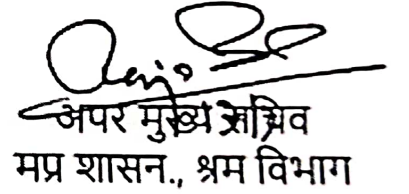 अपर मुख्य सचिव
मप्र शासन., श्रम विभाग